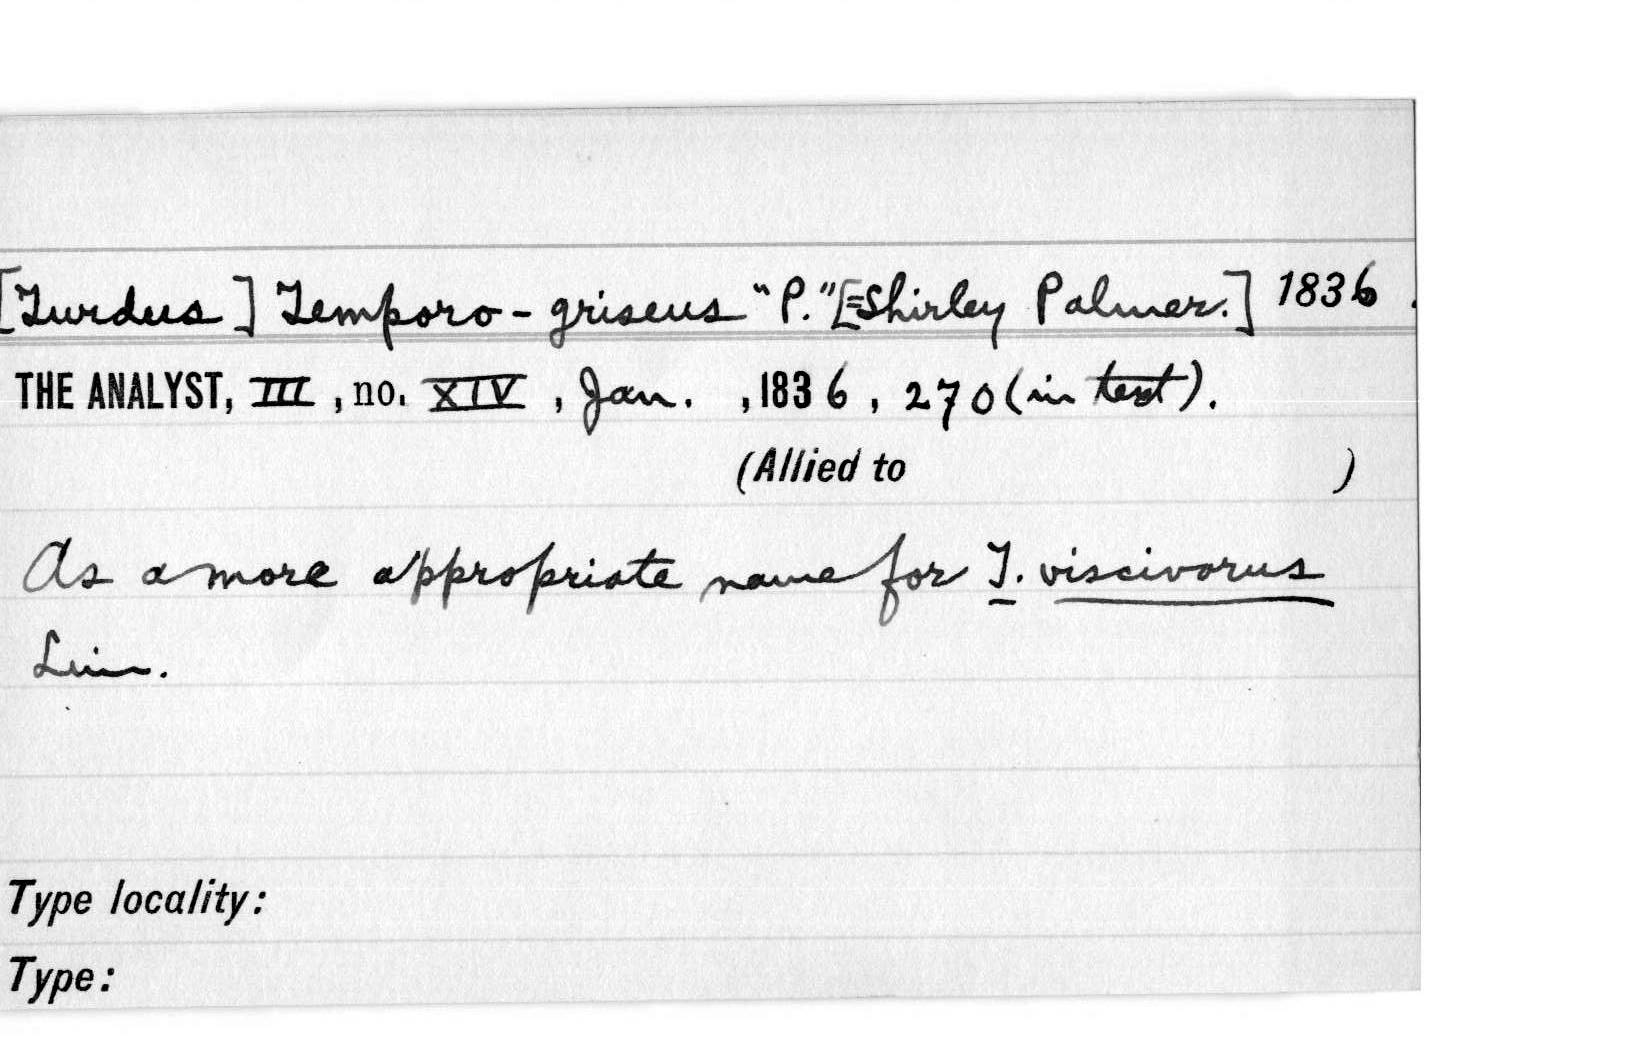 [Turdus] Temporo-griseus "P." [=Shirley Palmer.] 1836.
THE ANALYST, III, no. XIV, Jan. , 1836, 270 (in text).
(Allied to )
As a more appropriate name for T. viscivorus
Linn.
Type locality:
Type: